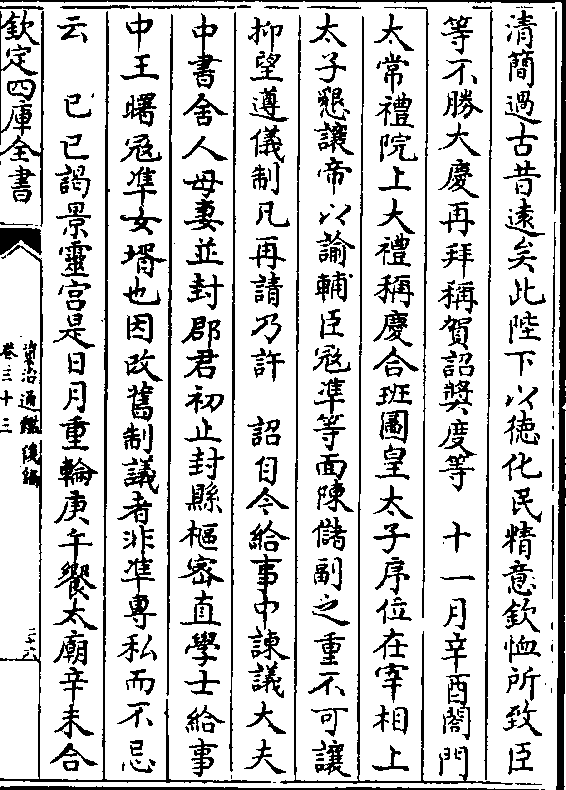 清簡過古昔遠矣此陛下以徳化民精意欽恤所致臣
等不勝大慶再拜稱賀詔奬度等　十一月辛酉閤門
太常禮院上大禮稱慶合班圖皇太子序位在宰相上
太子懇讓帝以諭輔臣冦準等面陳儲副之重不可讓
抑望遵儀制凡再請乃許　詔自今給事中諫議大夫
中書舍人母妻並封郡君初止封縣樞密直學士給事
中王曙冦準女壻也因改舊制議者非準専私而不忌
云　已已謁景靈宫是日月重輪庚午饗太廟辛未合
欽定四庫全書
資治通鑑後編
卷三十三
三六